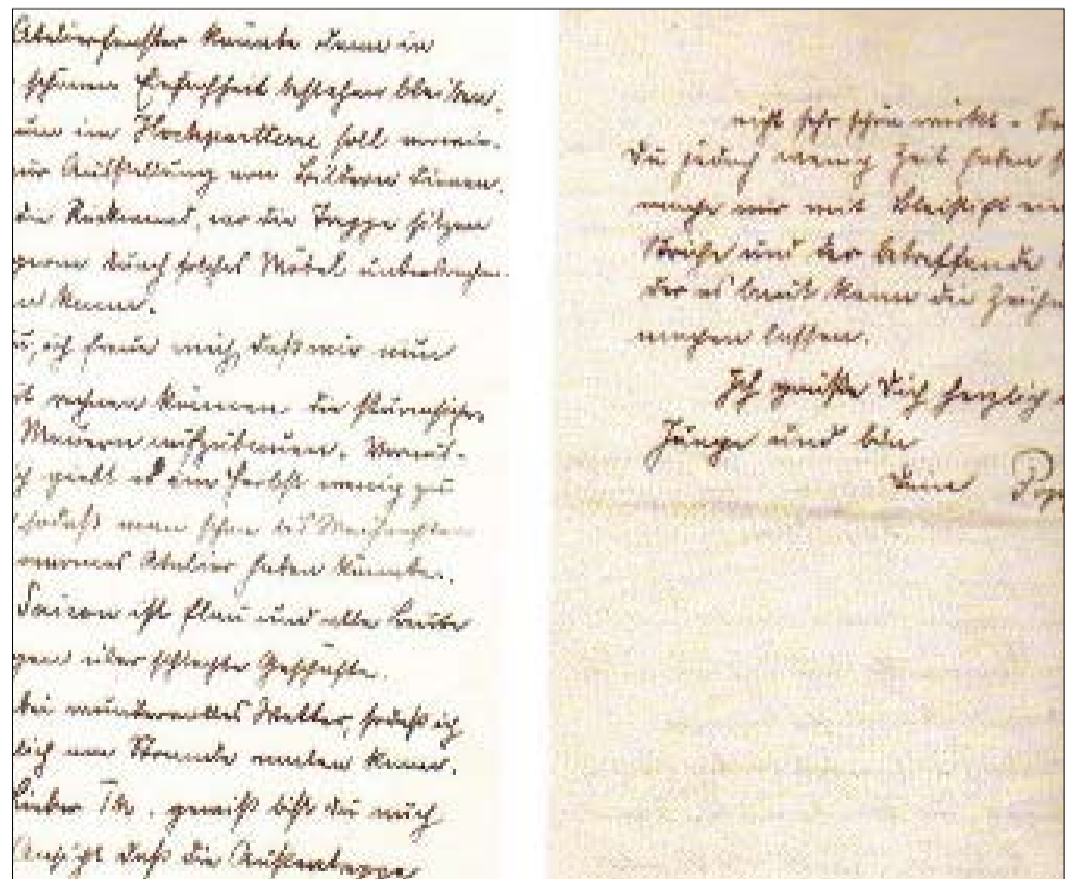 Atelierfenster könnte dann in
schönen Einfachheit bestehen bleiben.
im Hochparterre soll
zur Aufstellung von Bildern dienen.
die Rückwand, wo die Treppe sitzen
gerne durch solches Möbel unterbrochen
kann.
ich freue mich, daß wir nun
rechnen können die
Mauern aufzubauen.
giebt es im Herbst wenig zu
sodaß man schon bis Weihnachten
Atelier haben könnte.
Saison ist flau und alle Leute
über schlechte Geschäfte.
wundervolles Wetter, sodaß ich
am Strande malen kann.
Lieber Th. gewiß bist du auch
Ansicht daß die Außentreppe
nicht sehr schön wirkt.
Du jedoch wenig Zeit haben
mache mir mit Bleistift
Striche und der betreffende
der es baut kann die
machen lassen.
Ich grüße Dich herzlich
Junge und bin
Dein